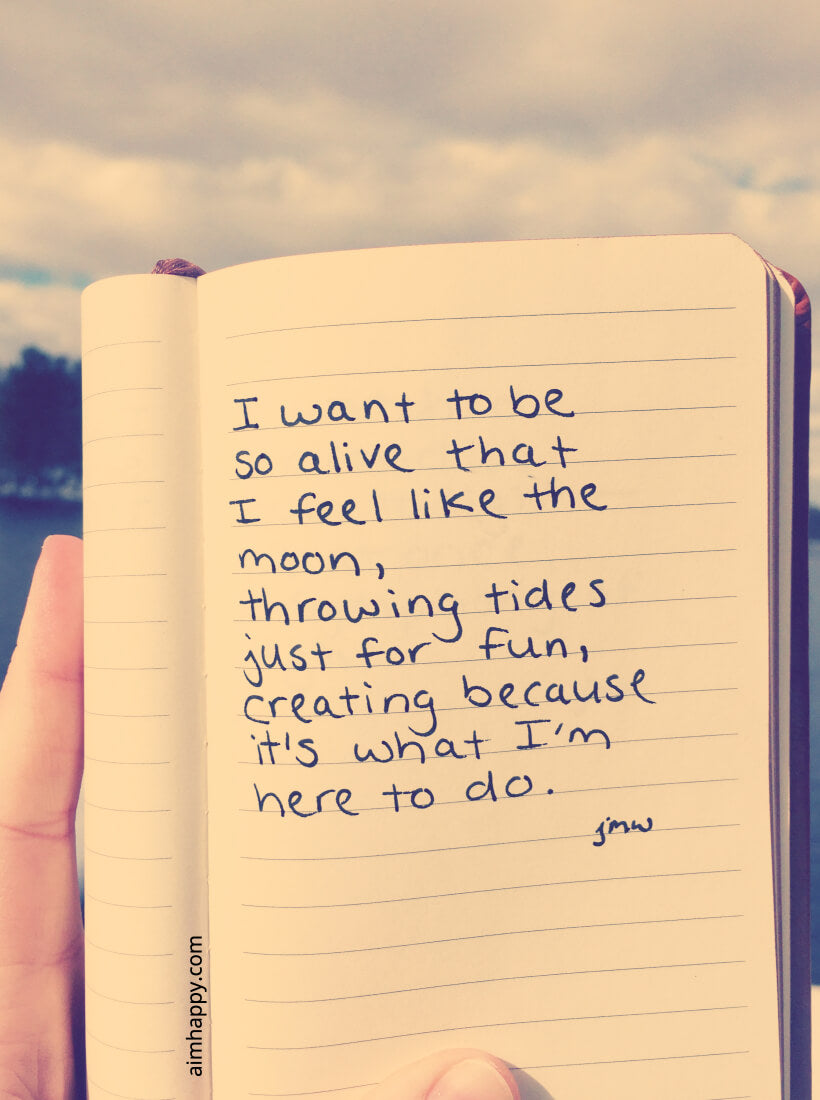 I want to be
so alive that
I feel like the
moon,
throwing tides
just for fun,
creating because
it's what I'm
here to do.
jmw
aimhappy.com